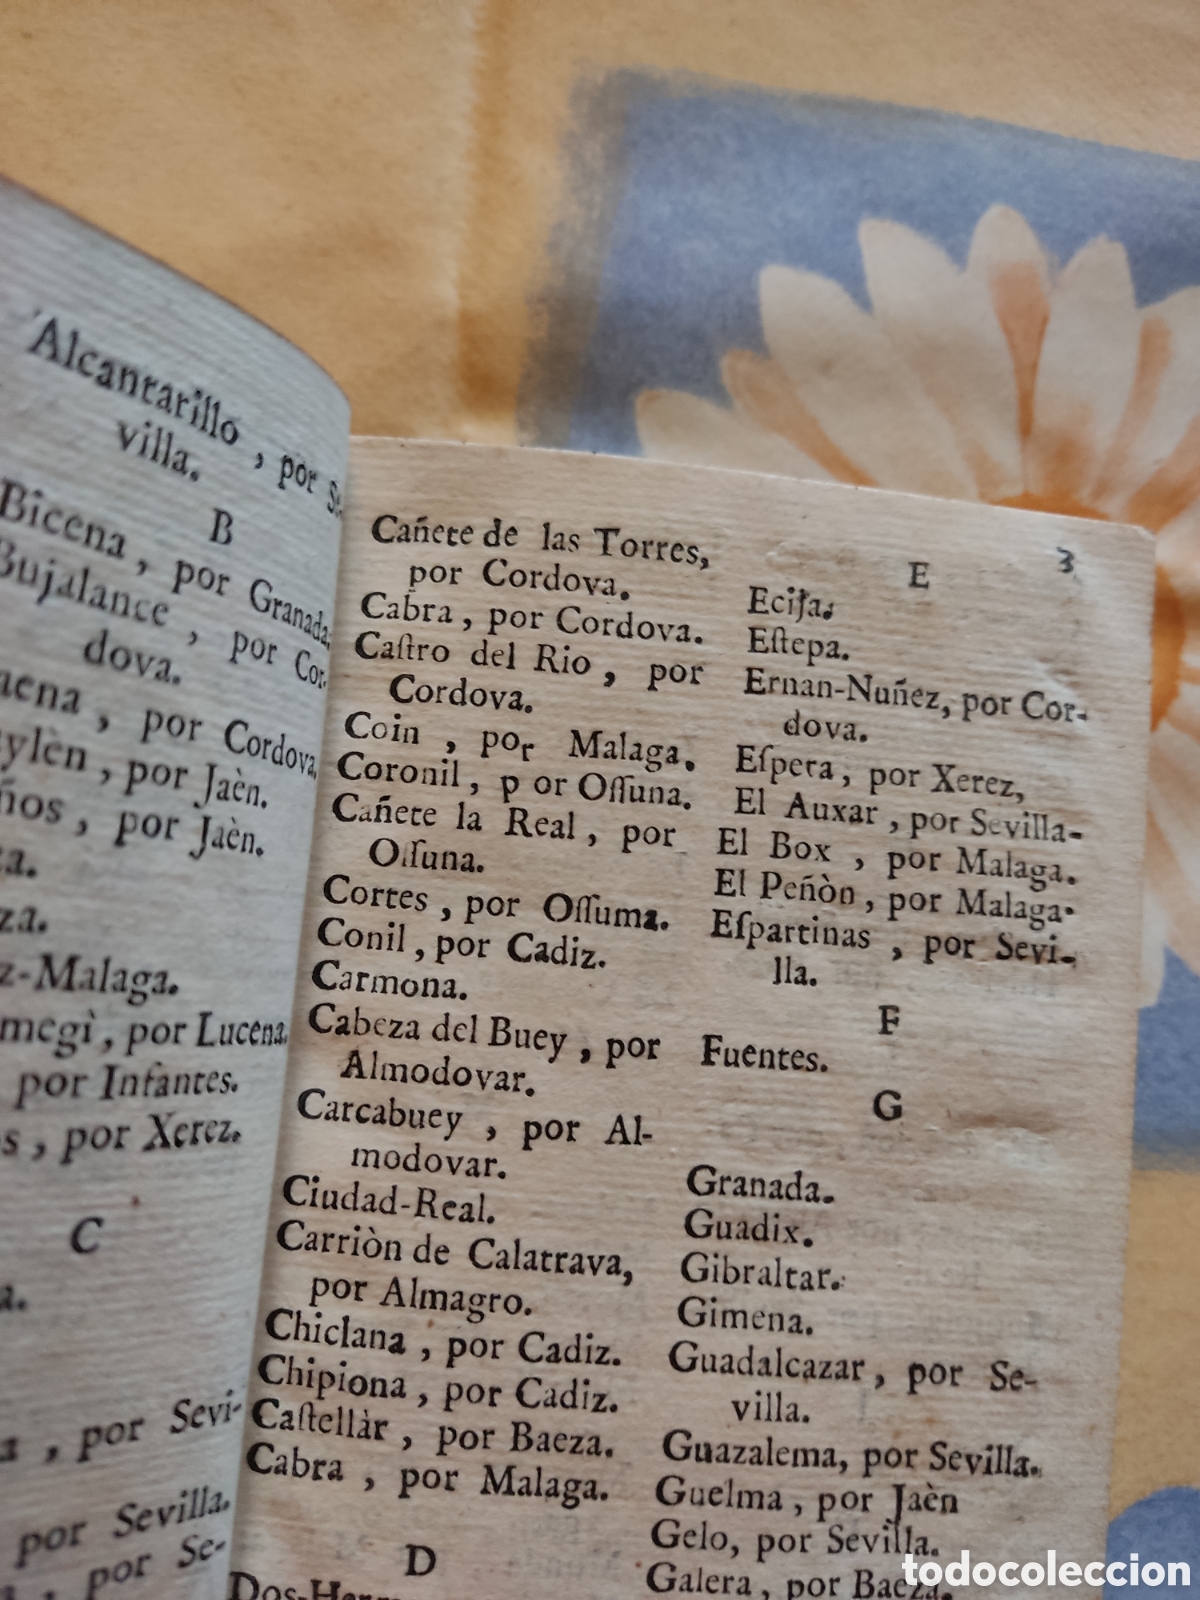 Alcantarillo, por Se-
villa.
B
Bicena, por Granada.
Bujalance, por Cor-
dova.
por Cordova.
por Jaèn.
por Jaèn.
z-Malaga.
por Lucena.
por Infantes.
por Xerez.
C
, por Sevi-
por Sevilla.
, por Se-
Cañete de las Torres,
por Cordova.
Cabra, por Cordova.
Caſtro del Rio, por
Cordova.
Coin, por Malaga.
Coronil, p or Oſſuna.
Cañete la Real, por
Oſſuna.
Cortes, por Oſſuma.
Conil, por Cadiz.
Carmona.
Cabeza del Buey, por
Almodovar.
Carcabuey, por Al-
modovar.
Ciudad-Real.
Carriòn de Calatrava,
por Almagro.
Chiclana, por Cadiz.
Chipiona, por Cadiz.
Caſtellàr, por Baeza.
Cabra, por Malaga.
D
3
E
Ecija.
Eſtepa.
Ernan-Nuñez, por Cor-
dova.
Eſpera, por Xerez,
El Auxar, por Sevilla-
El Box, por Malaga.
El Peñòn, por Malaga.
Eſpartinas, por Sevi-
lla.
F
Fuentes.
G
Granada.
Guadix.
Gibraltar.
Gimena.
Guadalcazar, por Se-
villa.
Guazalema, por Sevilla.
Guelma, por Jaèn
Gelo, por Sevilla.
Galera, por Baeza.
todocoleccion